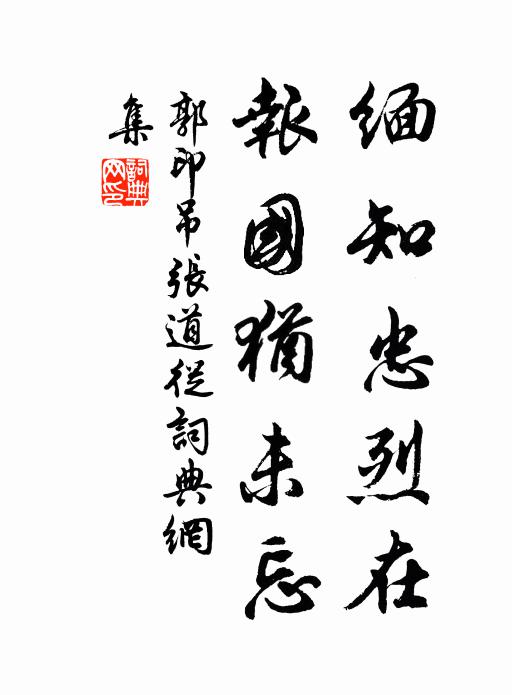 緬知忠烈在
報國猶未忘
郭印吊張道從詞典網
集
詞典网印